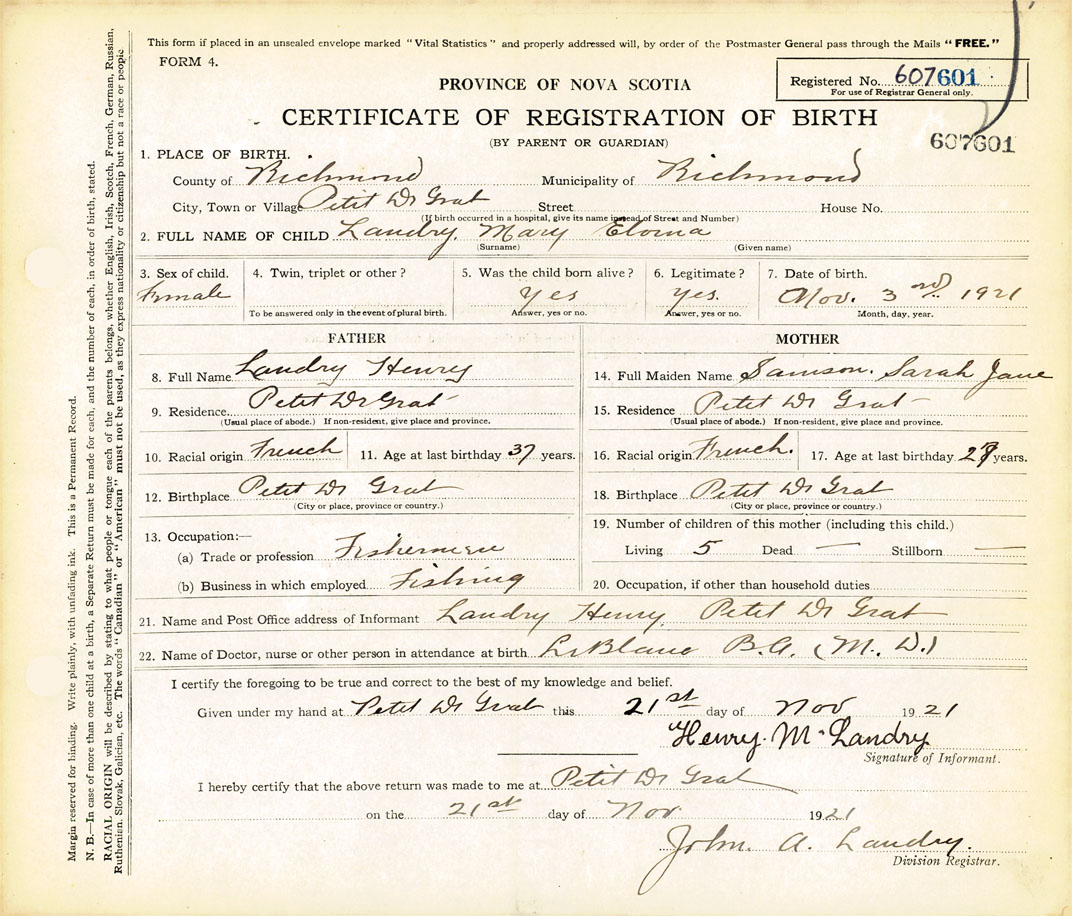 This form if placed in an unsealed envelope marked "Vital Statistics" and properly addressed will, by order of the Postmaster General pass through the Mails "FREE."
FORM 4.
Registered No. 607601
For use of Registrar General only.
PROVINCE OF NOVA SCOTIA
CERTIFICATE OF REGISTRATION OF BIRTH
607601
(BY PARENT OR GUARDIAN)
1. PLACE OF BIRTH.
County of Richmond Municipality of Richmond
City, Town or Village Petit De Grat Street House No.
(If birth occurred in a hospital, give its name instead of Street and Number)
2. FULL NAME OF CHILD Landry. Mary
(Surname) (Given name)
3. Sex of child. 4. Twin, triplet or other? 5. Was the child born alive? 6. Legitimate? 7. Date of birth.
Female Yes Yes. Nov. 3rd. 1921
To be answered only in the event of plural birth. Answer, yes or no. Answer, yes or no. Month, day, year.
FATHER MOTHER
8. Full Name Landry Henry
14. Full Maiden Name Samson. Sarah Jane
9. Residence. Petit De Grat
15. Residence Petit De Grat
(Usual place of abode.) If non-resident, give place and province.
(Usual place of abode.) If non-resident, give place and province.
10. Racial origin French 11. Age at last birthday 37 years.
16. Racial origin French. 17. Age at last birthday years.
12. Birthplace Petit De Grat
18. Birthplace Petit De Grat
(City or place, province or country.)
(City or place, province or country.)
13. Occupation:—
19. Number of children of this mother (including this child.)
(a) Trade or profession Fishermen
Living 5 Dead — Stillborn —
(b) Business in which employed Fishing
20. Occupation, if other than household duties
21. Name and Post Office address of Informant Landry Henry. Petit De Grat
22. Name of Doctor, nurse or other person in attendance at birth LeBlanc B.A. (M. D.)
I certify the foregoing to be true and correct to the best of my knowledge and belief.
Given under my hand at Petit De Grat this 21st day of Nov 1921
Henry. M. Landry
Signature of Informant.
I hereby certify that the above return was made to me at Petit De Grat
on the 21st day of Nov 1921
John. A. Landry.
Division Registrar.
Margin reserved for binding. Write plainly, with unfading ink. This is a Permanent Record.
N. B.—In case of more than one child at a birth, a Separate Return must be made for each, and the number of each, in order of birth, stated.
RACIAL ORIGIN will be described by stating to what people or tongue each of the parents belongs, whether English, Irish, Scotch, French, German, Russian,
Ruthenian, Slovak, Galician, etc. The words "Canadian" or "American" must not be used, as they express nationality or citizenship but not a race or people